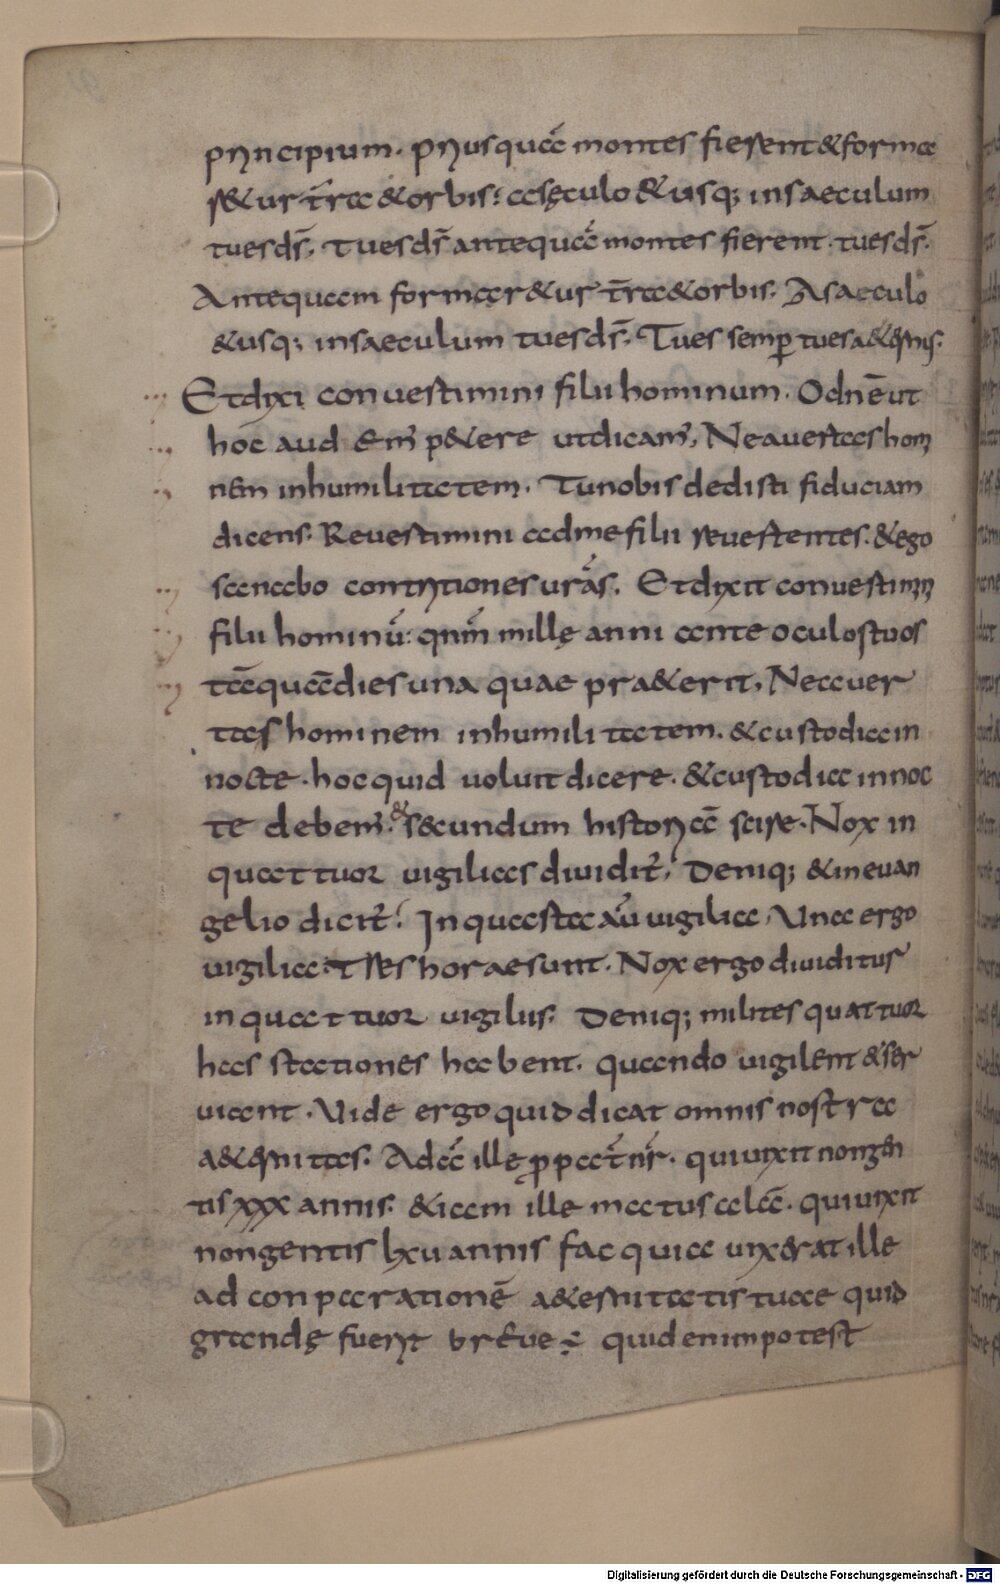 principium. priusquā montes fierent & forma
r&ur t̄ra & orbis: asęculo & usq; insaeculum
tuesds̄. Tuesds̄ antequā montes fierent. tuesds̄.
Antequam formar&ur t̄ra & orbis. Asaeculo
& usq; insaeculum tuesds̄. Tues semꝑ tuesa&ernis.
Etdixi conuestimini filii hominum. Odnēut
hoc aud em̄ p&ere utdicam̄, Neauertashomi
nem inhumilitatem. Tunobis dedisti fiduciam
dicens. Reuestimini admefilii reuertentes. & ego
sanabo contritionesurās. Etdixit conuestimini
filii hominū: qnm̄ millę anni ante oculostuos
tāquādies una quae pra&erit, Neauer
tas hominem inhumilitatem. & custodia in
nocte. hoc quid uoluit dicere. & custodia innoc
te debem̄. & secundum historiā scire. Nox in
quattuor uigilias diuidit̄, Deniq; & in euan
gelio dicit̄: In quarta aūuigilia, Una ergo
uigilia. Tres horae sunt. Nox ergo diuiditur
in quattuor uigilis. Deniq; milites quattuor
has stationes habent. quando uigilent & ser
uiant. Uide ergo quid dicat omnis nostra
a&ernitas. Adā ille ꝓpat̄nr̄. qui uixit nongen
tis xxx annis. & iam ille matusalā. qui uixit
nongentis lxu annis fac quia uix&rat ille
ad conparationē a&ernitatis tuae quid
grandę fuerit breue? quid enim potest
Digitalisierung gefördert durch die Deutsche Forschungsgemeinschaft · DFG